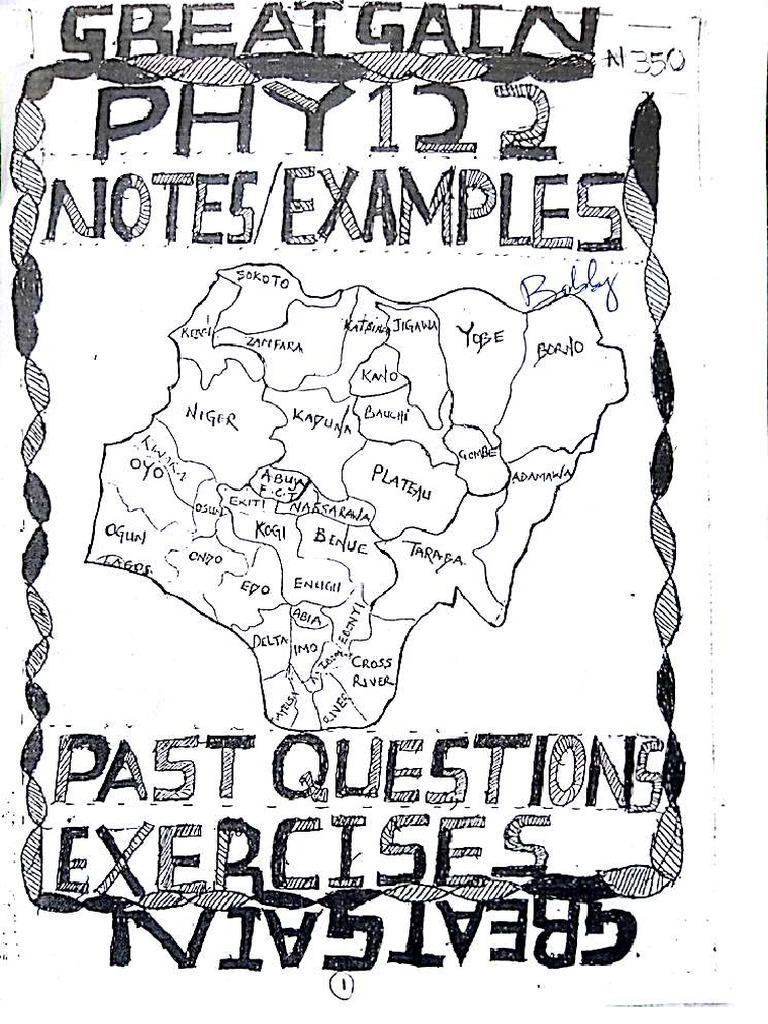 GREAT GAIN
₦350
PHY 122
NOTES/EXAMPLES
Bobby
SOKOTO
KEBBI
ZAMFARA
KATSINA
JIGAWA
YOBE
BORNO
KANO
NIGER
KADUNA
BAUCHI
GOMBE
KWARA
OYO
ABUJA
F.C.T
PLATEAU
ADAMAWA
OSUN
EKITI
NASSARAWA
OGUN
KOGI
BENUE
LAGOS
ONDO
TARABA
EDO
ENUGU
ABIA
EBONYI
DELTA
IMO
CROSS
RIVER
RIVER
PAST QUESTIONS
EXERCISES
GREAT GAIN
1